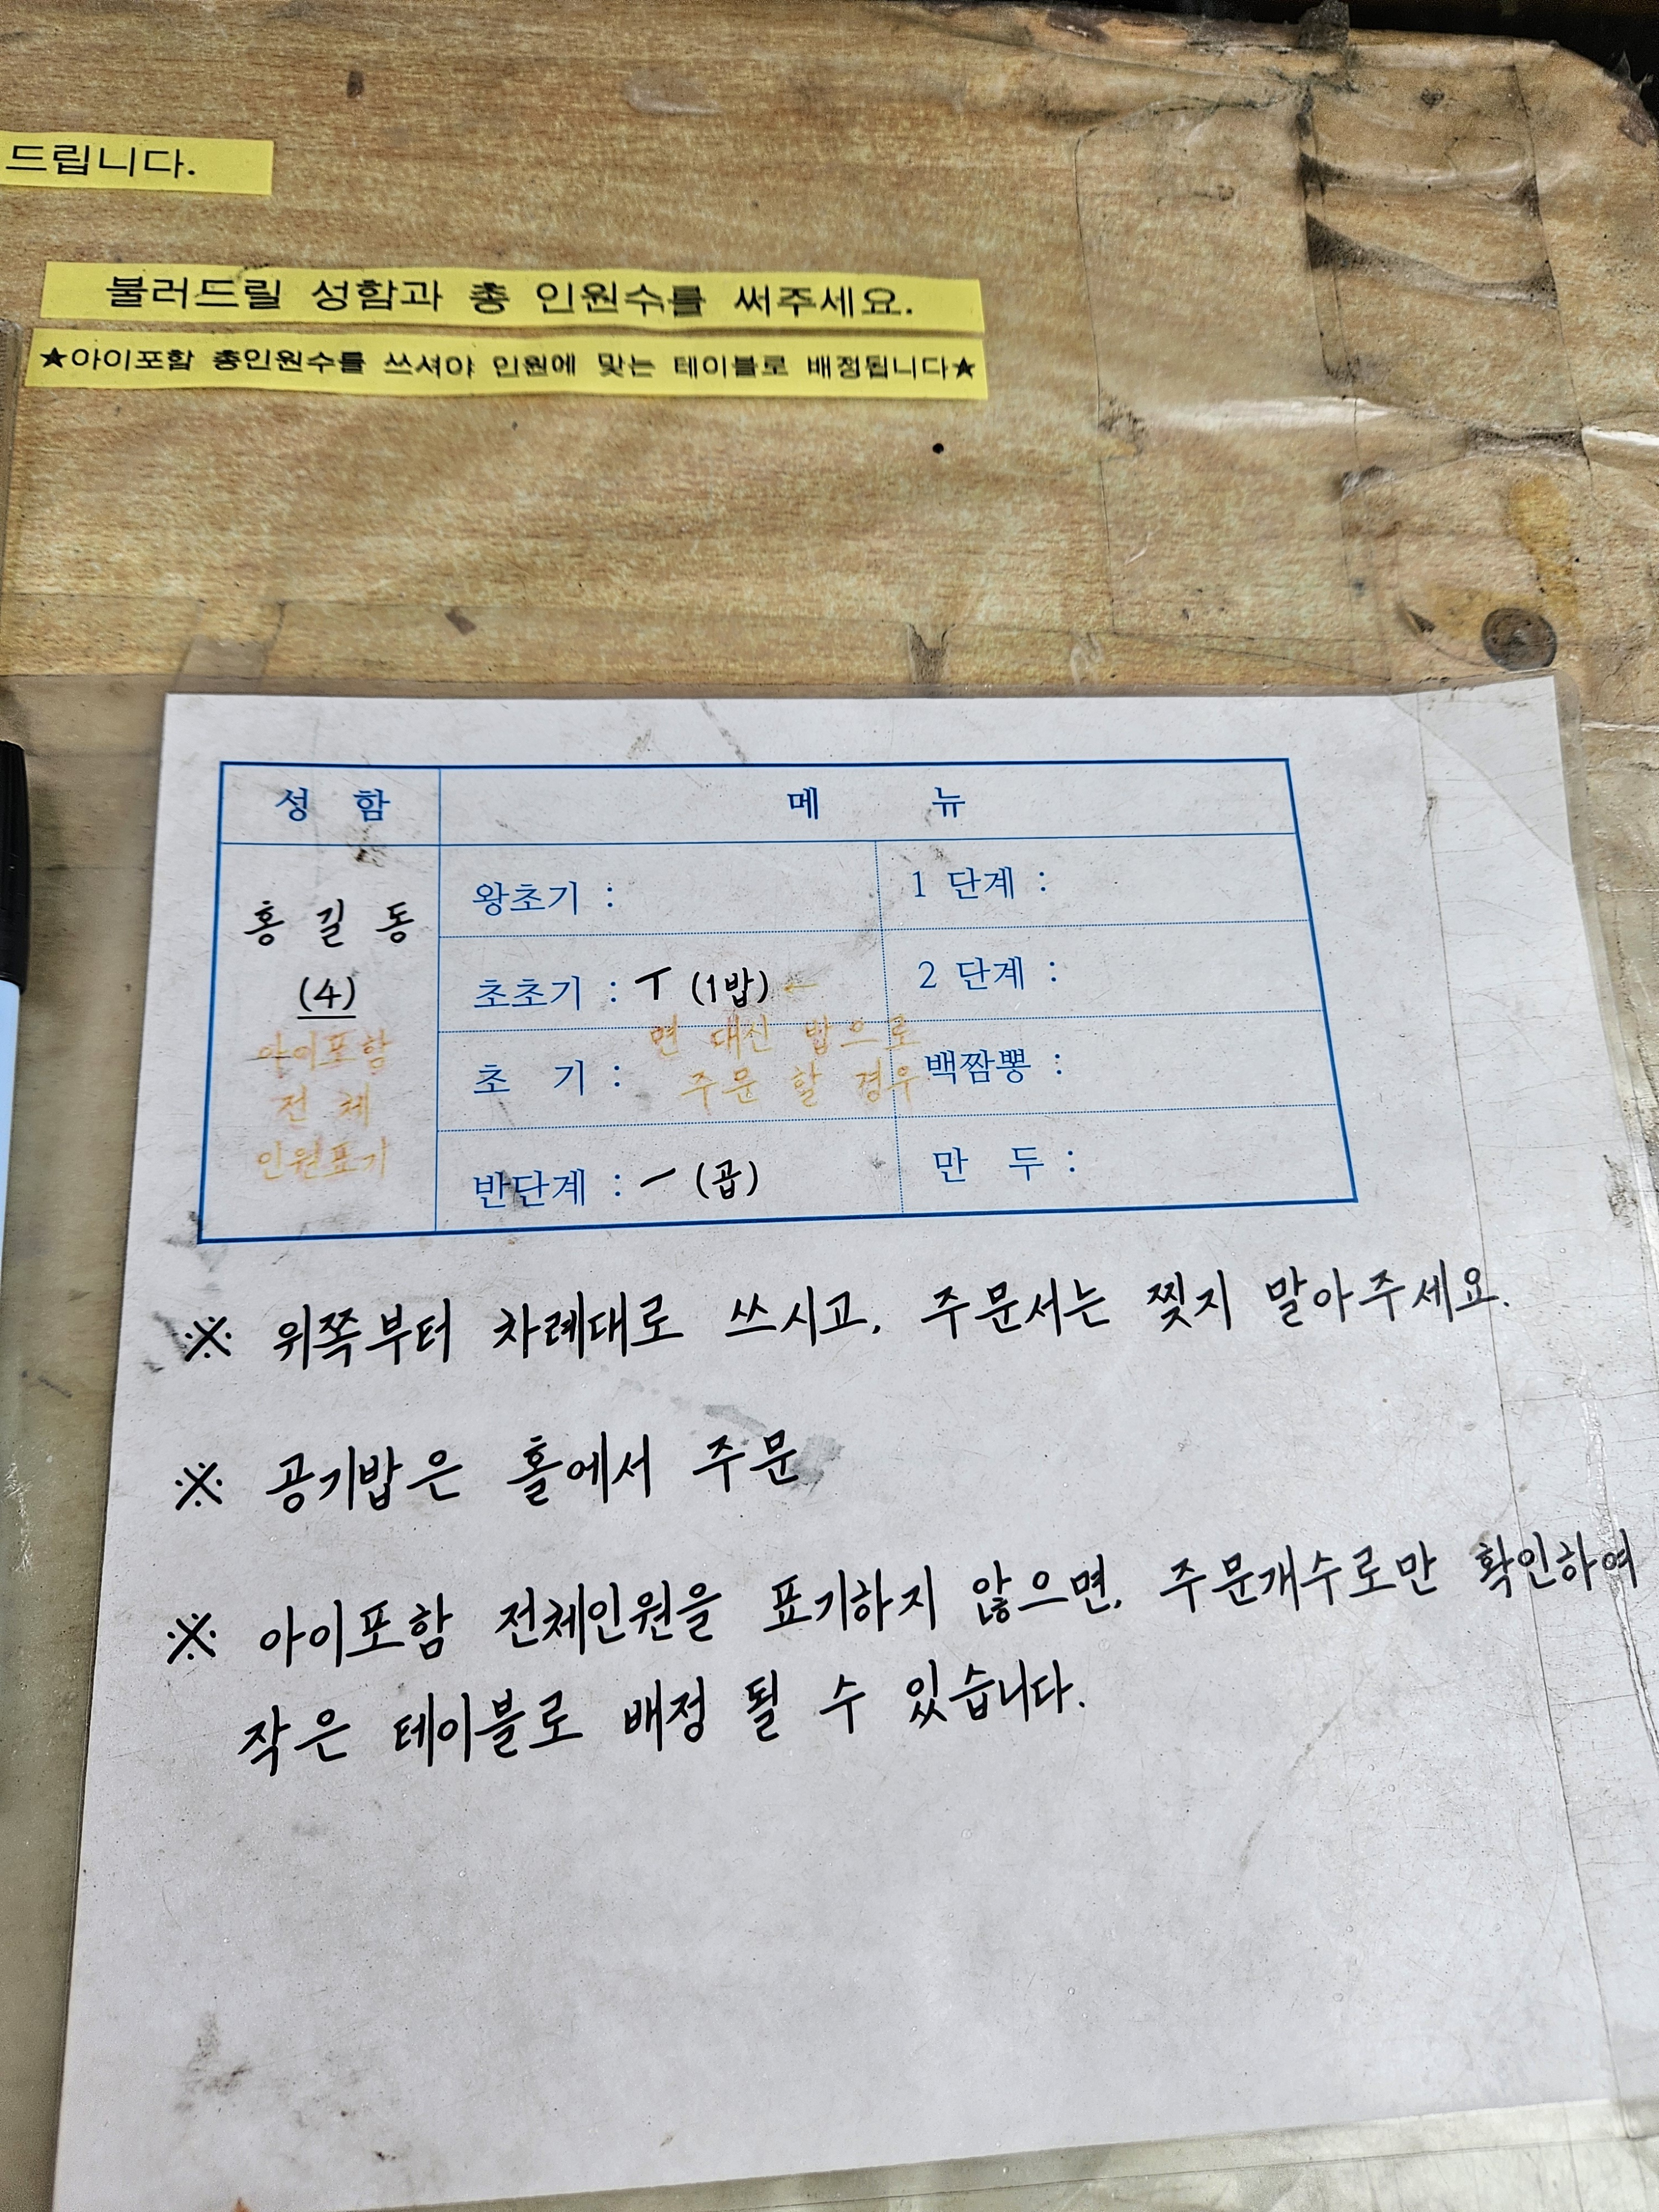 드립니다.
불러드릴 성함과 총 인원수를 써주세요.
★아이포함 총인원수를 쓰셔야 인원에 맞는 테이블로 배정됩니다★
성 함
메 뉴
홍 길 동
(4)
아이포함
전 체
인원표기
왕초기 :
1 단계 :
초초기 : ㅜ (1밥) ←
2 단계 :
면 대신 밥으로
주문 할 경우
초 기 :
백짬뽕 :
반단계 : ㅡ (곱)
만 두 :
※ 위쪽부터 차례대로 쓰시고, 주문서는 찢지 말아주세요.
※ 공기밥은 홀에서 주문
※ 아이포함 전체인원을 표기하지 않으면, 주문개수로만 확인하여
작은 테이블로 배정 될 수 있습니다.